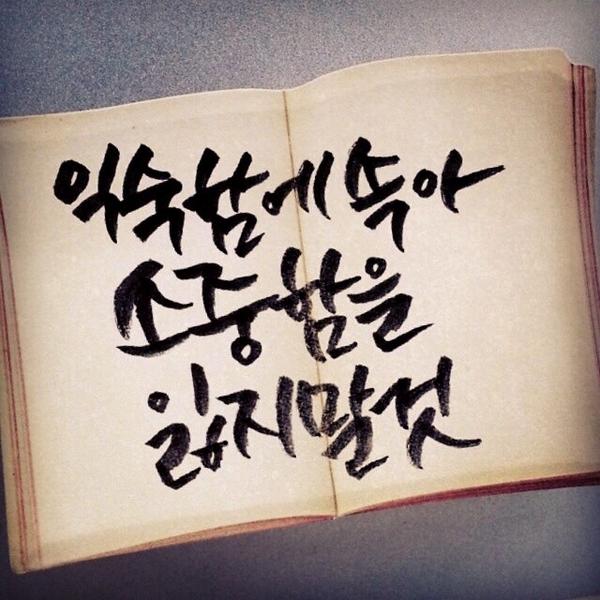 익숙함에 속아
소중함을
잃지말것